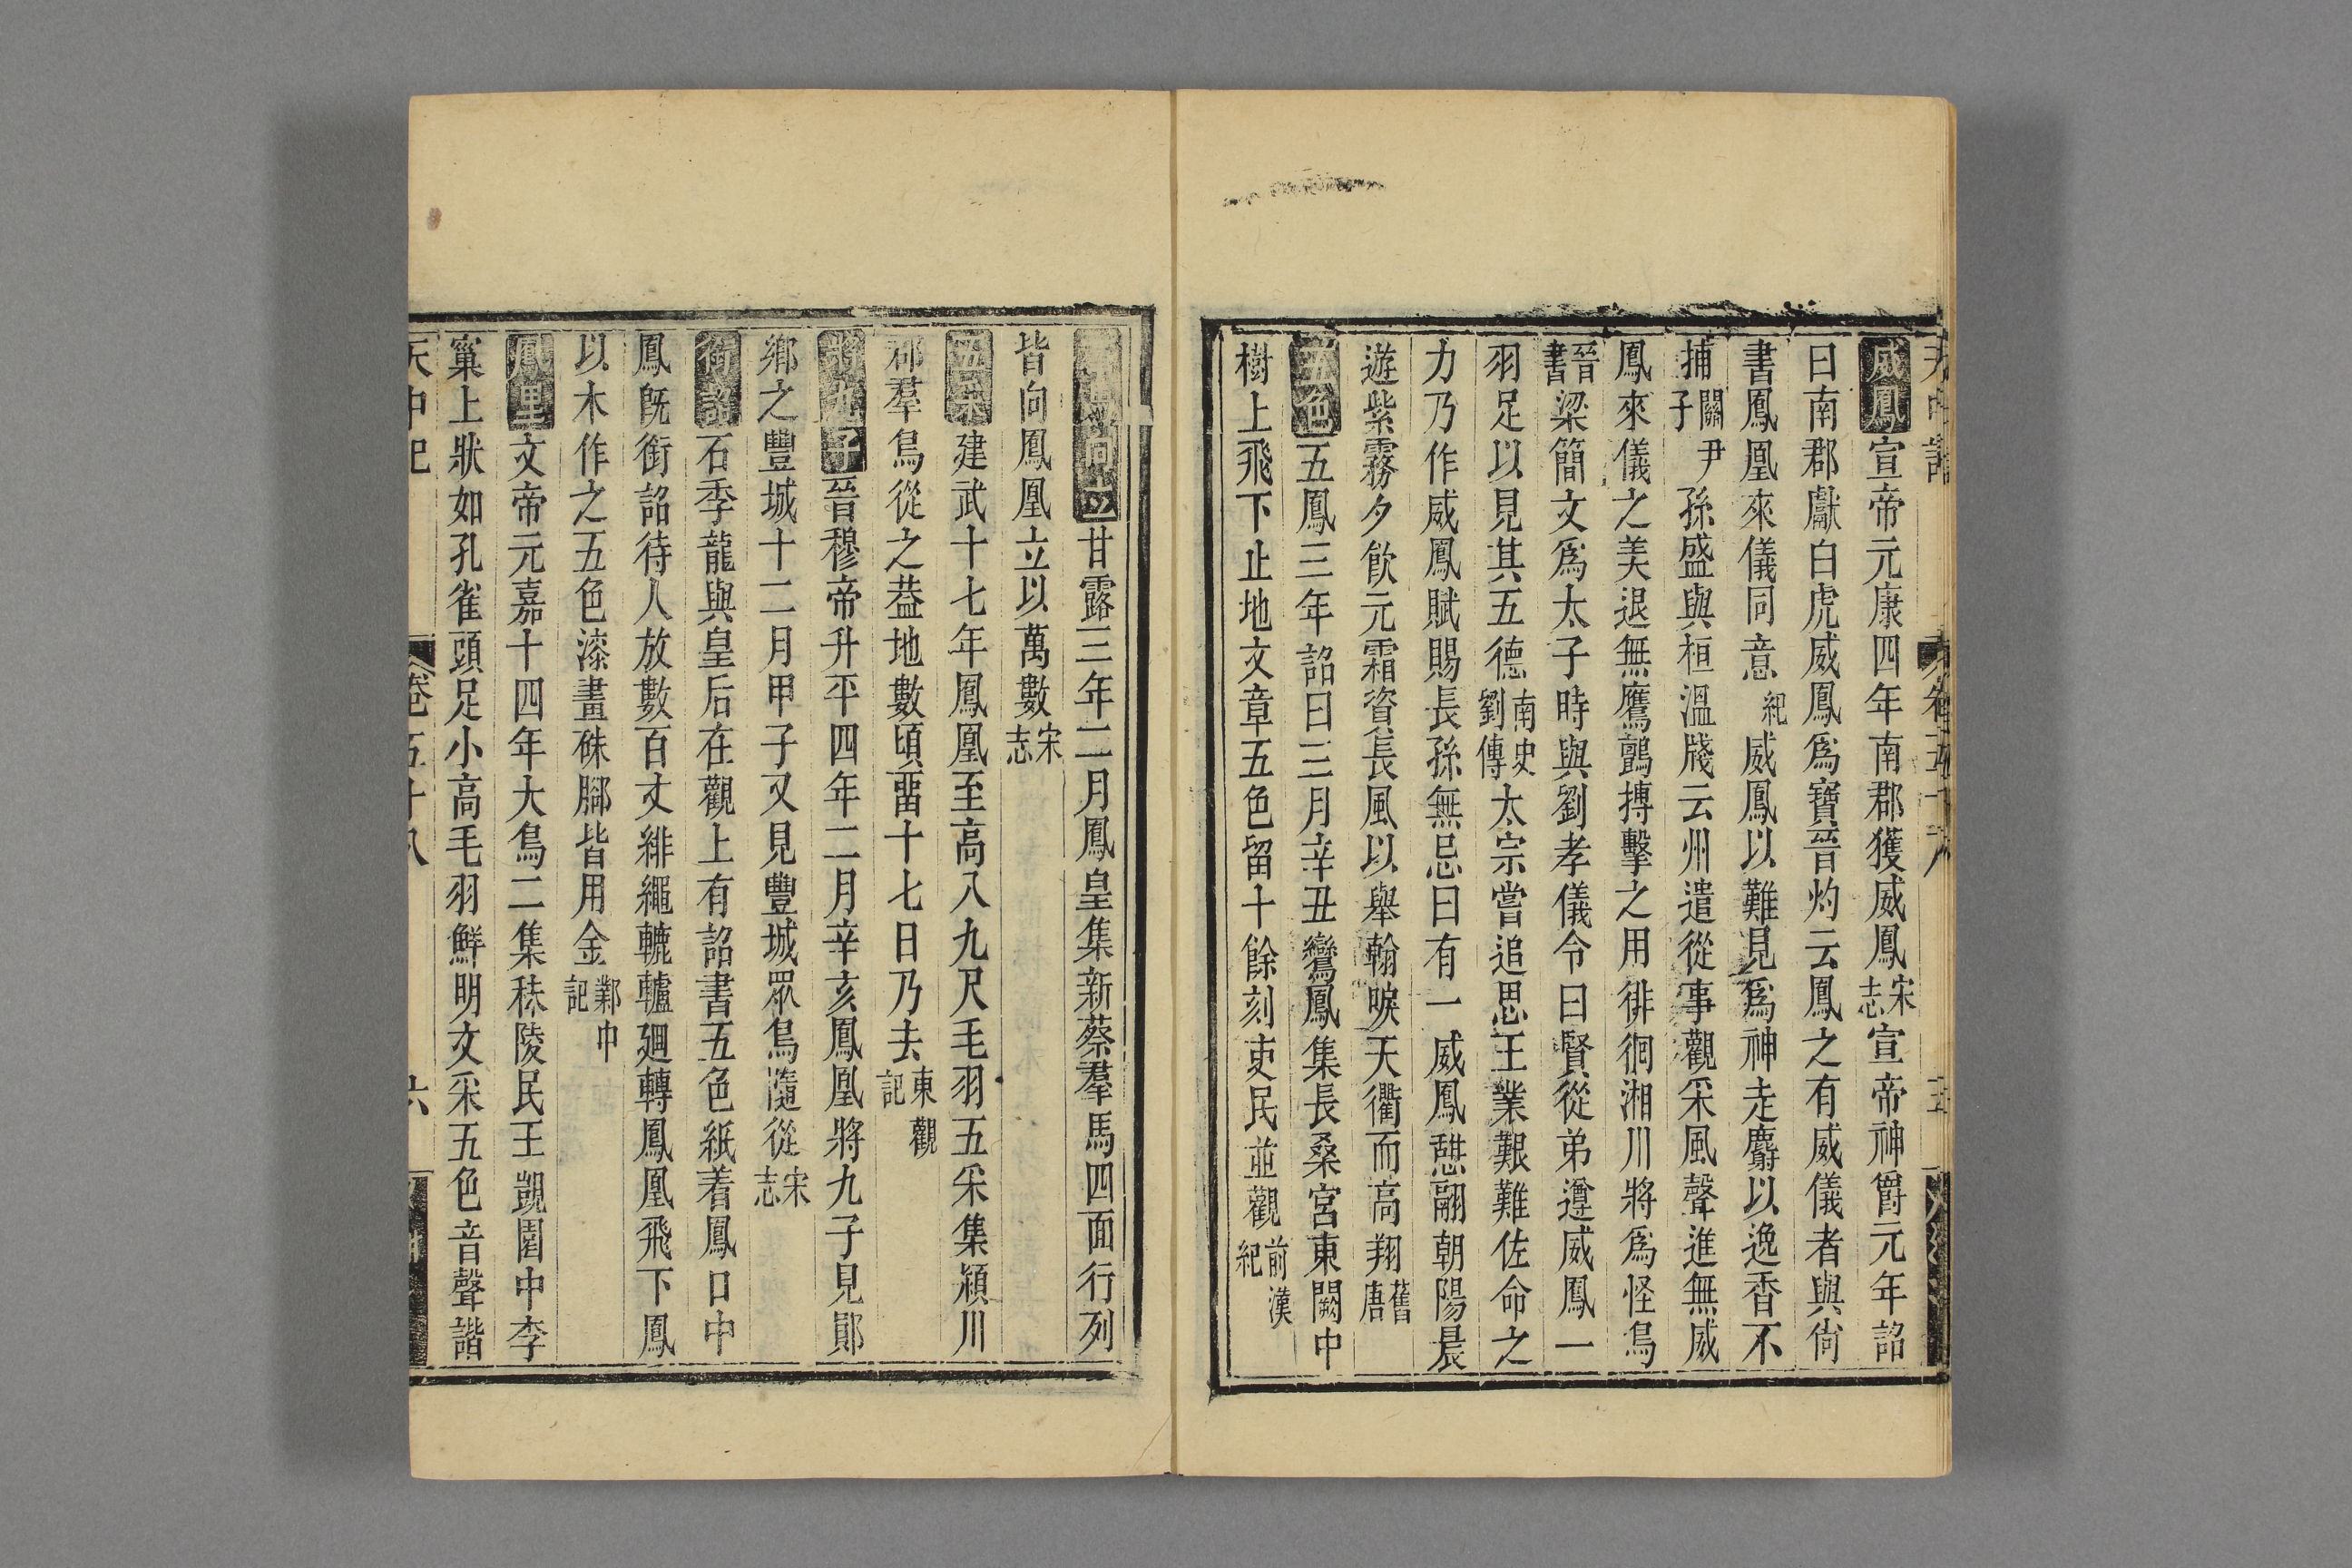 威鳳宣帝元康四年南郡獲威鳳宋志宣帝神爵元年詔
曰南郡獻白虎威鳳爲寶晉灼云鳳之有威儀者與尙
書鳳凰來儀同意紀威鳳以難見爲神走麝以逸香不
捕關尹子孫盛與桓溫牋云州遣從事觀采風聲進無威
鳳來儀之美退無鷹鸇搏擊之用徘徊湘川將爲怪鳥
晉書梁簡文爲太子時與劉孝儀令曰賢從弟遵威鳳一
羽足以見其五德南史劉傳太宗嘗追思王業艱難佐命之
力乃作威鳳賦賜長孫無忌曰有一威鳳憇翮朝陽晨
遊紫霧夕飮元霜資長風以舉翰唳天衢而高翔舊唐
五色五鳳三年詔曰三月辛丑鸞鳳集長桑宮東闕中
樹上飛下止地文章五色留十餘刻吏民並觀前漢紀
向立甘露三年二月鳳皇集新蔡羣馬四面行列
皆向鳳凰立以萬數宋志
五采建武十七年鳳凰至高八九尺毛羽五采集潁川
郡羣鳥從之葢地數頃畱十七日乃去東觀記
將九子晉穆帝升平四年二月辛亥鳳凰將九子見鄖
鄉之豐城十二月甲子又見豐城眾鳥隨從宋志
銜詔石季龍與皇后在觀上有詔書五色紙着鳳口中
鳳旣銜詔待人放數百丈緋繩轆轤廻轉鳳凰飛下鳳
以木作之五色漆畫咮腳皆用金鄴中記
鳳里文帝元嘉十四年大鳥二集秣陵民王覬園中李
窠上狀如孔雀頭足小高毛羽鮮明文采五色音聲諧
天中記 卷五十八 六